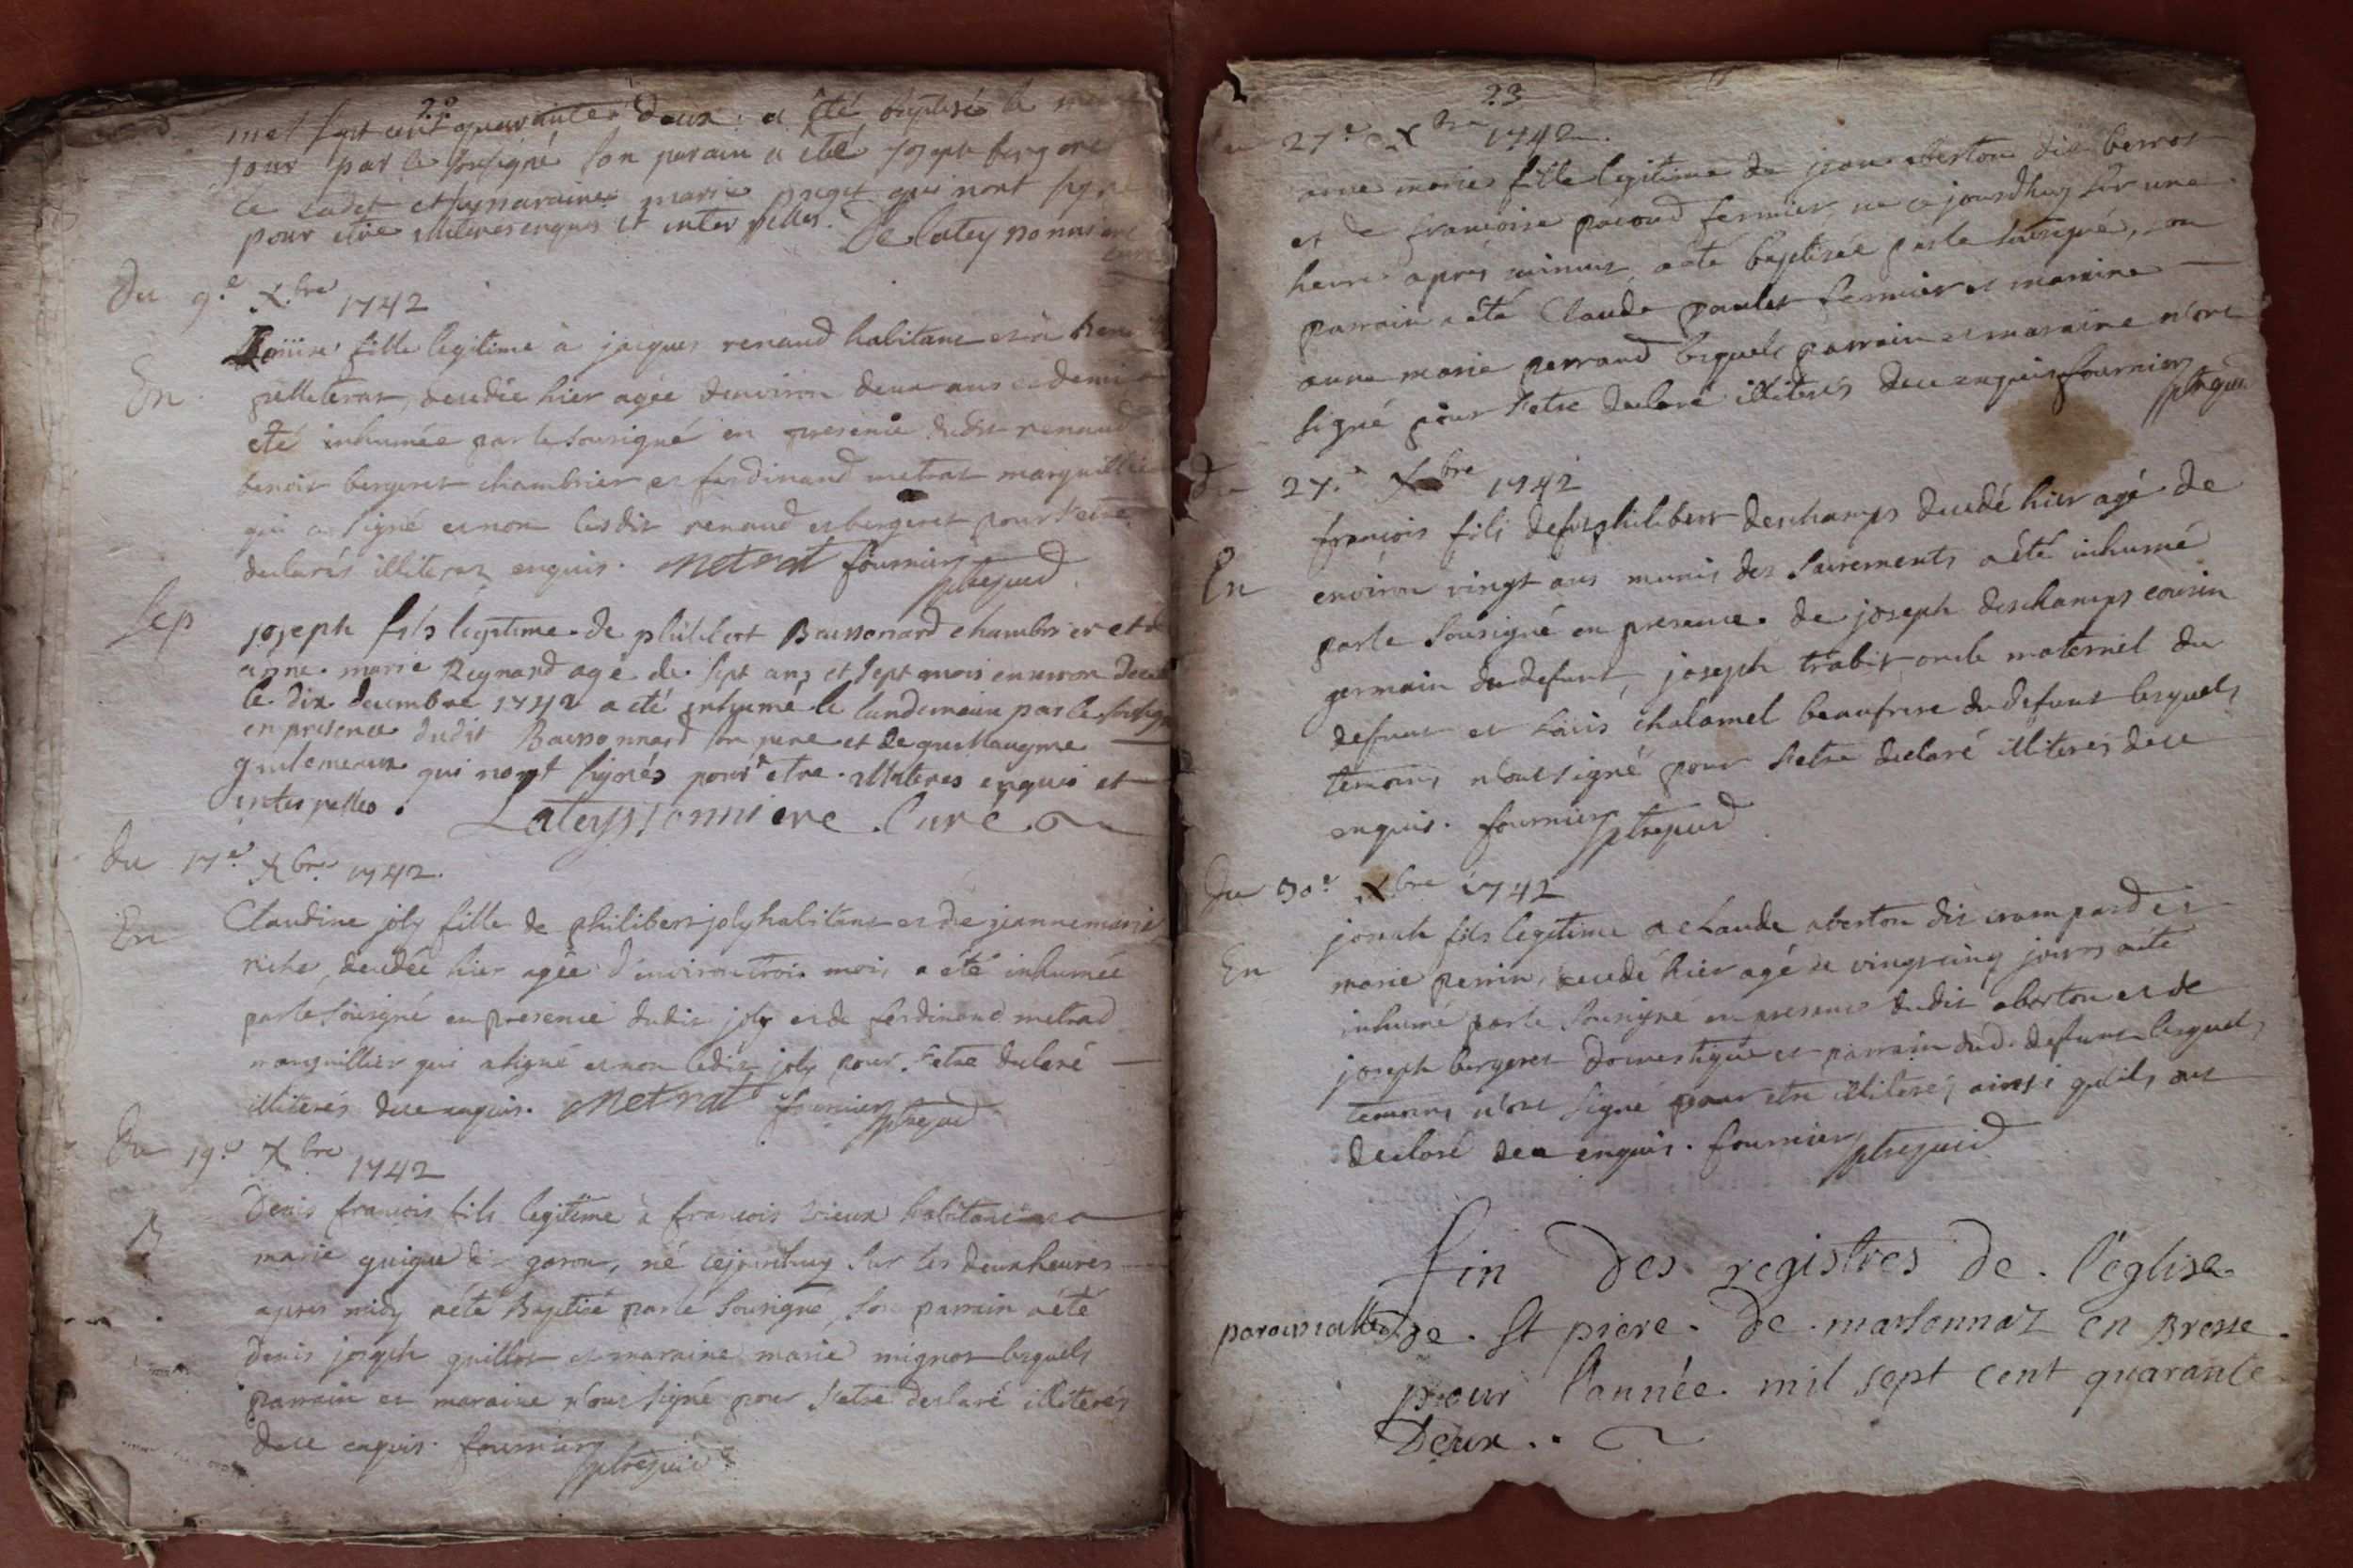 22
mil sept cent quarante deux a été baptisé le meme
jour par le soussigné son parain a été joseph bergeret
le cadet et sa maraine marie puget qui nont signé
pour etre illiteres enquis et interpelles. De lateyssonniere
curé
Du 9.e X.bre 1742
Louise fille legitime à jacques renaud habitant et à
En
pelleteras, decedée hier agée denviron deux ans et demi a
eté inhumée par le sousigné en presence dudit renaud
benoit bergeret chambrier et ferdinand metrat marguillier
qui a signé et non lesdits renaud et bergeret pour s'etre
declarés illiteres enquis. Metrat fournier
Sep
joseph fils legitime de philibert Baissonard chambrier et de
anne marie Reynard agé de sept ans et sept mois environ decedé
le dix decembre 1742 a eté inhumé le landemain par le soussigné
en presence dudit Baissonnard son pere et de guillaugme
guilemeaux qui nont signés pour etre illiteres enquis et
interpelles. Lateyssonniere Curé
Du 17.e Xbre 1742.
En
Claudine joly fille de philibert joly habitant et de jeanne marie
riche, decedée hier agée d'environ trois mois a été inhumée
par le sousigné en presence dudit joly et de ferdinand metrad
marguillier qui a signé et non ledit joly pour s'etre declaré
illiterés de ce enquis. Metrat fournier
Du 19.e Xbre 1742
B
Denis francois fils legitime à francois vieux habitant et a
marie guigue dit goron, né cejourdhuy sur les deux heures
apres midy a été Baptisé par le sousigné, son parrain a été
denis joseph guillot et maraine marie mignot lesquels
parrain et maraine n'ont signé pour s'etre declaré illiterés
de ce enquis. fournier
23
27.e Xbre 1742.
anne marie fille legitime de jean aberton dit berrot
et de francoise pacoud fermier, né ce jourdhuy sur une
heure après minuit a été baptisée par le sousigné, son
parrain a été Claude paulet fermier et maraine
anne marie perraud lesquels parrain et maraine n'ont
signé pour s'etre declaré illiterés de ce enquis fournier
Du 27.e Xbre 1742
françois fils de fut philibert deschamps decedé hier agé de
En
environ vingt ans munis des sacrements a été inhumé
par le sousigné en presence de joseph deschamps cousin
germain du defunt, joseph trabit oncle maternel du
defunt et louis chalamel beaufrere du defunt lesquels
temoins n'ont signé pour s'etre declaré illiterés de ce
enquis. fournier
Du 30.e Xbre 1742
joseph fils legitime a claude aberton dit crampard et
En
marie perrin, decedé hier agé de vingt cinq jours a été
inhumé par le sousigné en presence dudit aberton et de
joseph bergeret domestique et parrain dud. defunt lesquels
temoins n'ont signé pour etre illiterés ainsi qu'ils ont
declaré de ce enquis. fournier
fin des registres de l'église
paroissialle de St piere de marsonnaz en Bresse
pour l'année mil sept cent quarante
Deux..